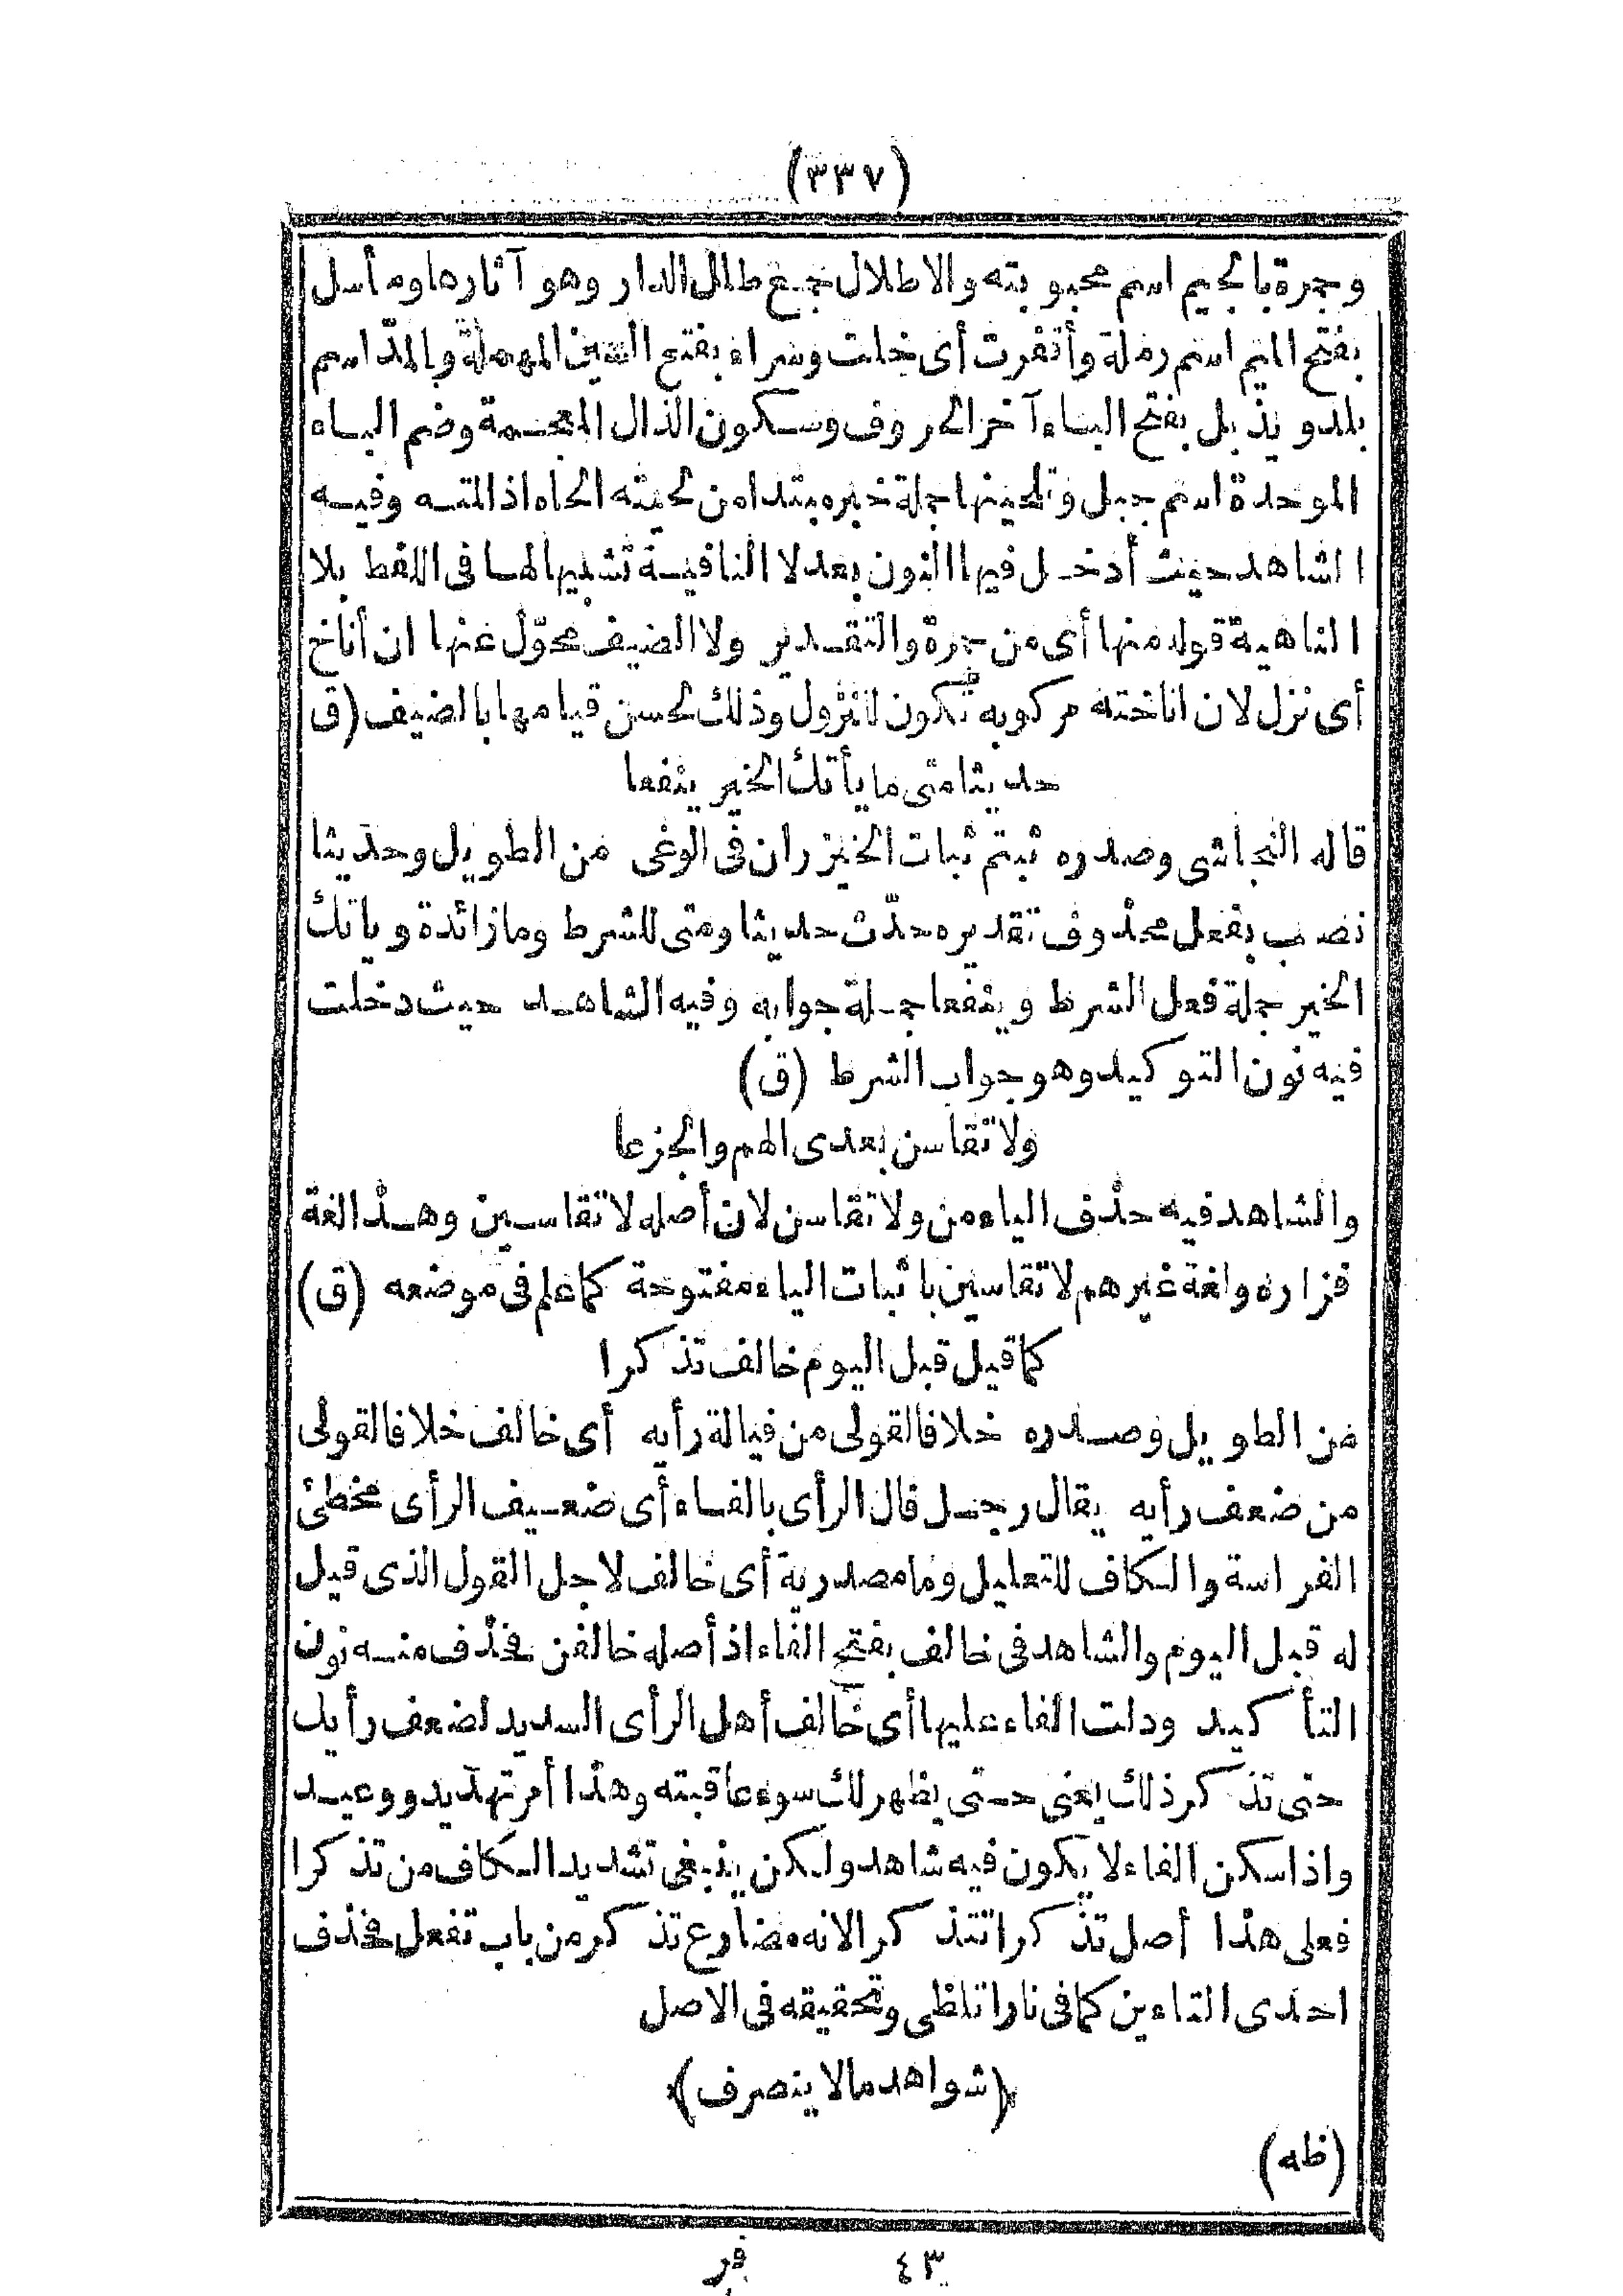 (٣٣٧)
وجمرة بالجيم اسم محبوبته والاطلال جمع طلل الدار وهو آثارها ومأسل
بفتح الميم اسم رملة وأقفرت أى خلت وسراء بفتح السين المهملة وبالمدّ اسم
بلد ويذبل بفتح الياء آخر الحروف وسكون الذال المعجمة وضم الباء
الموحدة اسم جبل وتلحينها جملة خبر مبتدا من لحيته الحاه اذا لمته وفيه
الشاهد حيث أدخل فيها النون بعد لا النافية تشبيها لها فى اللفظ بلا
الناهية قوله منها أى من جمرة والتقدير ولا الضيف محوّل عنها ان أناخ
أى نزل لان اناخته مركوبه تكون للنزول وذلك لحسن قيامها بالضيف (ق
حديثا متى ما يأتك الخير ينفعا
قاله النجاشى وصدره ثبتم ثبات الخيزران فى الوغى من الطويل وحديثا
نصب بفعل محذوف تقديره حدّث حديثا ومتى للشرط وما زائدة ويأتك
الخير جملة فعل الشرط وينفعا جملة جوابه وفيه الشاهد حيث دخلت
فيه نون التوكيد وهو جواب الشرط (ق)
ولا تقاسن بعدى الهم والجزعا
والشاهد فيه حذف الياء من ولا تقاسن لان أصله لا تقاسين وهذا لغة
فزاره ولغة غيرهم لا تقاسين باثبات الياء مفتوحة كما علم فى موضعه (ق)
كما قيل قبل اليوم خالف تذكرا
من الطويل وصدره خلافا لقولى من فيالة رأيه أى خالف خلافا لقولى
من ضعف رأيه يقال رجل فال الرأى بالفاء أى ضعيف الرأى مخطئ
الفراسة والكاف للتعليل وما مصدرية أى خالف لاجل القول الذى قيل
له قبل اليوم والشاهد فى خالف بفتح الفاء اذ أصله خالفن فحذف منه نون
التأكيد ودلت الفاء عليها أى خالف أهل الرأى السديد لضعف رأيك
حتى تذكر ذلك يعنى حتى يظهر لك سوء عاقبته وهذا أمر تهديد ووعيد
واذا سكن الفاء لا يكون فيه شاهد ولكن ينبغى تشديد الكاف من تذكرا
فعلى هذا أصل تذكرا تتذكرا لانه مضارع تذكر من باب تفعل فحذف
احدى التاءين كما فى نارا تلظى وتحقيقه فى الاصل
(شواهد ما لا ينصرف)
(ظه)
٤٣ فر